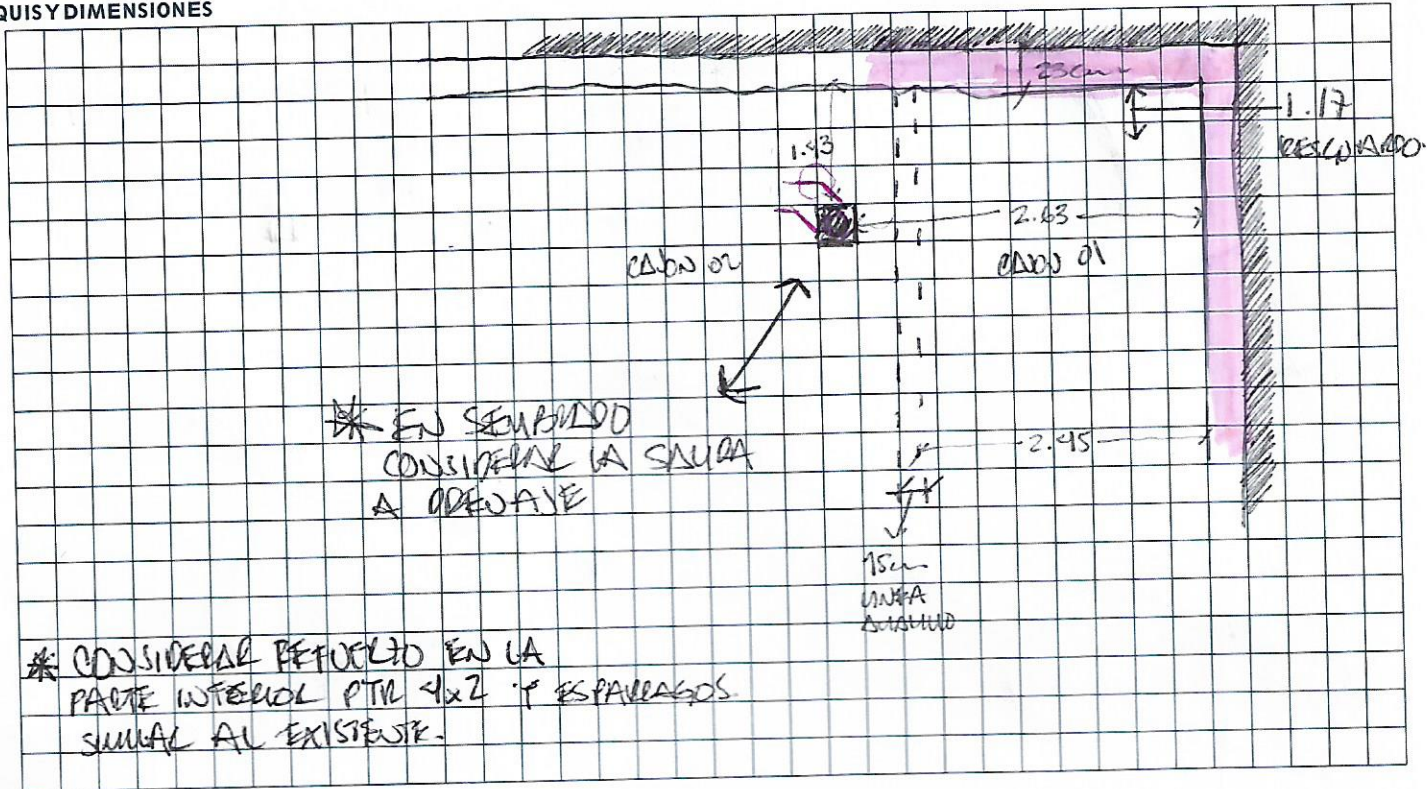 QUIS Y DIMENSIONES
23cm
1.17
RESGUARDO.
1.43
2.63
CAJON 02
CAJON 01
* EN SEMBRADO
CONSIDERAR LA SALIDA
A DRENAJE
2.45
15cm
LINEA
AMARILLO
* CONSIDERAR REFUERZO EN LA
PARTE INTERIOR PTR 4x2 Y ESPARRAGOS
SIMILAR AL EXISTENTE.